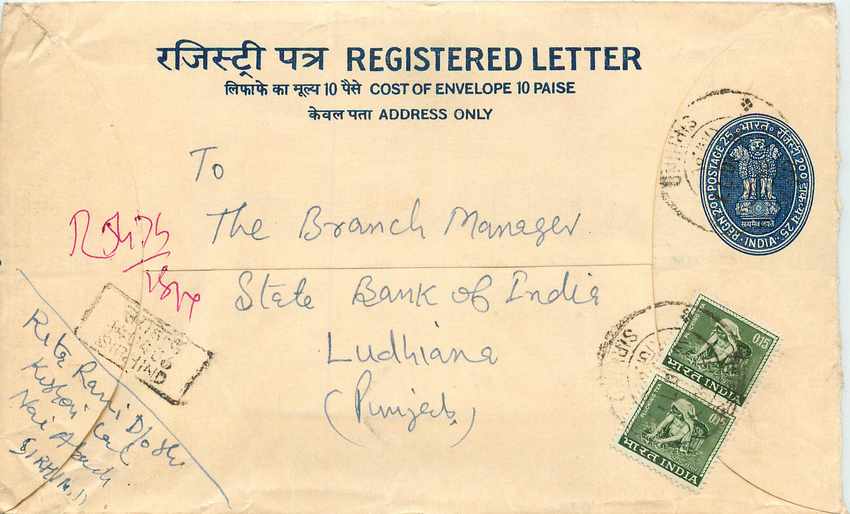 रजिस्ट्री पत्र REGISTERED LETTER
लिफाफे का मूल्य 10 पैसे COST OF ENVELOPE 10 PAISE
केवल पता ADDRESS ONLY
REGN. 200 POSTAGE 25 भारत रजिस्ट्री 200 डाक 25 INDIA
सत्यमेव जयते
To
The Branch Manager
State Bank of India
Ludhiana
(Punjab)
SIRHIND
Rita Rani D/o Sh.
Nai Abadi
0.15
भारत INDIA
0.15
भारत INDIA